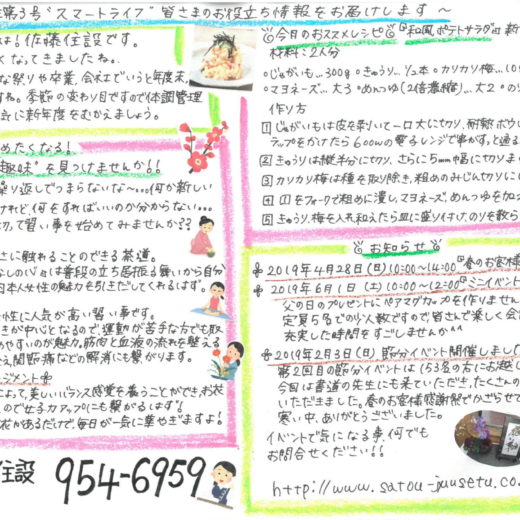 第3号 "スマートライフ" 皆さまのお役立ち情報をお届けします ～
は! 佐藤住設です。
くなってきましたね。
な祭りや卒業、会社でいうと年度末、
すね。季節の変わり目ですので体調管理
気に新年度をむかえましょう。
めたくなる!
趣味" を見つけませんか!!
繰り返しでつまらないな～…何か新しい
けれど、何をすればいいのか分からない…
切って習い事を始めてみませんか??
さに触れることのできる茶道。
なしの心は普段の立ち居振る舞いから自分
日本人女性の魅力を引きだしてくれるはず。
女性に人気が高い習い事です。
きが中心となるので、運動が苦手な方でも取
めやすいのが魅力。筋肉と血液の流れを整える
え、関節痛などの解消にも繋がります。
ンジメント
よって、美しいバランス感覚を養うことができ、お花
ので女子力アップにも繋がるはず!
お花があるだけで、毎日が一気に華やぎますよ!
住設 954-6959
今日のおススメレシピ 『和風ポテトサラダ』 新
材料：2人分
○じゃがいも…300g ○きゅうり…1/2本 ○カリカリ梅…10
○マヨネーズ…大3 ○めんつゆ(2倍濃縮)…大2 ○のり
作り方
1 じゃがいもは皮を剥いて一口大にカリ、耐熱ボウル
ラップをかけたら600wの電子レンジで串がすっと通る
2 きゅうりは縦半分にカリ、さらに5mm幅にカリま
3 カリカリ梅は種を取り除き、粗めのみじんカリに
4 1をフォークで粗めに潰し、マヨネーズ、めんつゆを加
5 きゅうり、梅を入れ和えたら皿に盛り付け、のりを散ら
お知らせ
2019年4月28日(日)10:00～14:00『春のお客様
2019年6月1日(土)10:00～12:00『ミニイベント
父の日のプレゼントにペアマグカップを作りません
定員5名でのり人数ですので皆さんで楽しく会
充実した時間をすごしませんか^^
2019年2月3日(日)節分イベント開催しまし
第2回目の節分イベントは153名の方にお越し
今回は書道の先生にも来ていただき、たくさんの
いただきました。春のお客様感謝祭でかざらせて
寒い中、ありがとうございました。
イベントで気になる事、何でも
お問合せください!!
http://www.satou-juusetu.co.